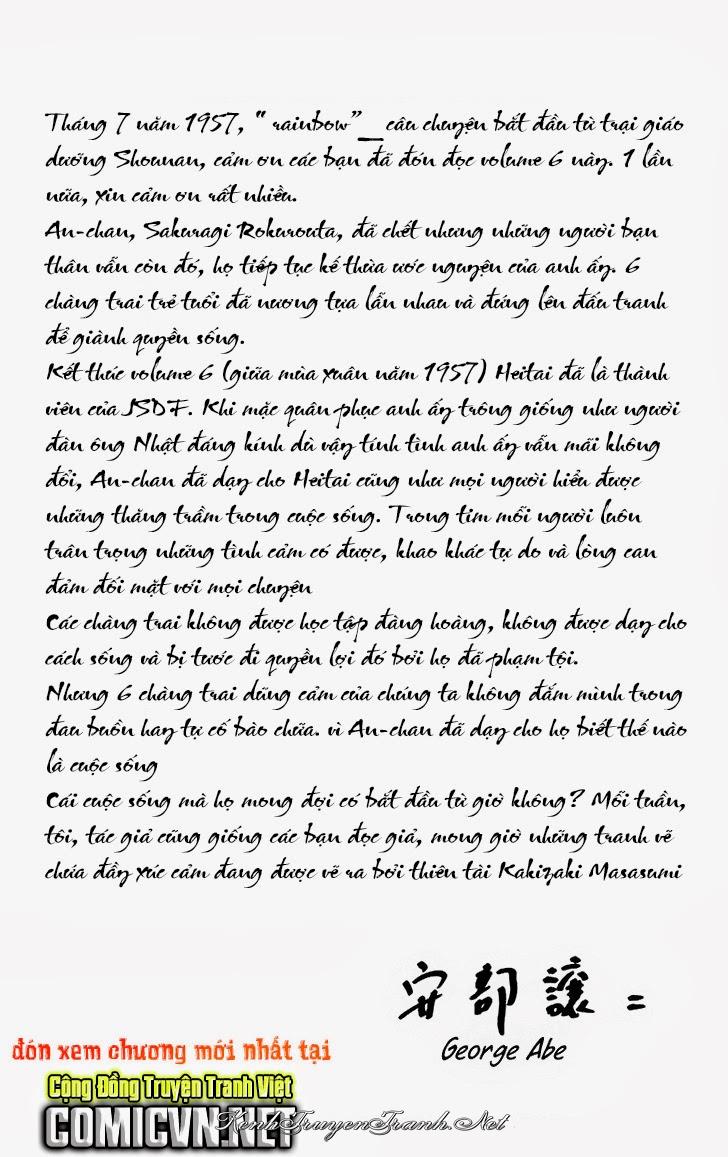 Tháng 7 năm 1957, “ rainbow”_ câu chuyện bắt đầu từ trại giáo
dưỡng Shounan, cảm ơn các bạn đã đón đọc volume 6 này. 1 lần
nữa, xin cảm ơn rất nhiều.
An-chan, Sakuragi Rokurouta, đã chết nhưng những người bạn
thân vẫn còn đó, họ tiếp tục kế thừa ước nguyện của anh ấy. 6
chàng trai trẻ tuổi đã nương tựa lẫn nhau và đứng lên đấu tranh
để giành quyền sống.
Kết thúc volume 6 (giữa mùa xuân năm 1957) Heitai đã là thành
viên của JSDF. Khi mặc quân phục anh ấy trông giống như người
đàn ông Nhật đáng kính dù vậy tính tình anh ấy vẫn mãi không
đổi, An-chan đã dạy cho Heitai cũng như mọi người hiểu được
những thăng trầm trong cuộc sống. Trong tim mỗi người luôn
trân trọng những tình cảm có được, khao khác tự do và lòng can
đảm đối mặt với mọi chuyện
Các chàng trai không được học tập đàng hoàng, không được dạy cho
cách sống và bị tước đi quyền lợi đó bởi họ đã phạm tội.
Nhưng 6 chàng trai dũng cảm của chúng ta không đắm mình trong
đau buồn hay tự cố bào chữa. vì An-chan đã dạy cho họ biết thế nào
là cuộc sống
Cái cuộc sống mà họ mong đợi có bắt đầu từ giờ không? Mỗi tuần,
tôi, tác giả cũng giống các bạn đọc giả, mong giờ những tranh vẽ
chứa đầy xúc cảm đang được vẽ ra bởi thiên tài Kakizaki Masasumi
安部譲二
George Abe
đón xem chương mới nhất tại
Cộng Đồng Truyện Tranh Việt
COMICVN.NET
KenhTruyenTranh.Net